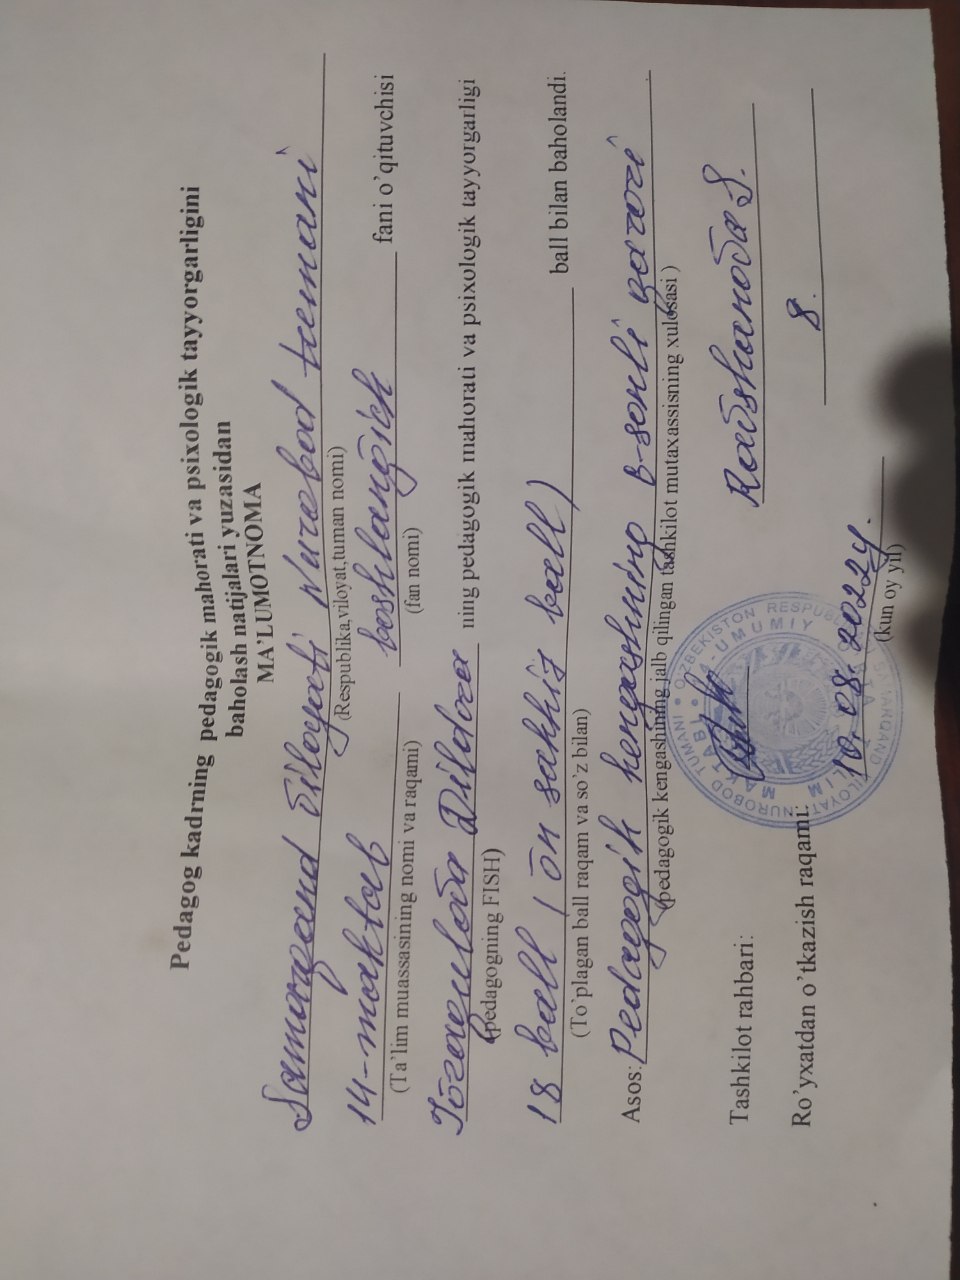 Pedagog kadrning pedagogik mahorati va psixologik tayyorgarligini
baholash natijalari yuzasidan
MA’LUMOTNOMA
Samarqand viloyati Nurobod tumani
(Respublika,viloyat,tuman nomi)
14-maktab boshlang'ich fani o’qituvchisi
(Ta’lim muassasining nomi va raqami) (fan nomi)
Dildora ning pedagogik mahorati va psixologik tayyorgarligi
(pedagogning FISH)
18 ball (õn sakkiz ball) ball bilan baholandi.
(To’plagan ball raqam va so’z bilan)
Asos: Pedagogik kengashning 8-sonli qarori
(pedagogik kengashining jalb qilingan tashkilot mutaxassisning xulosasi )
Tashkilot rahbari: S.
Ro’yxatdan o’tkazish raqami: 8.
10.08.2022y.
(kun oy yil)
O'ZBEKISTON RESPUBLIKASI SAMARQAND VILOYATI NUROBOD TUMANI
14-UMUMIY O'RTA TA'LIM MAKTABI